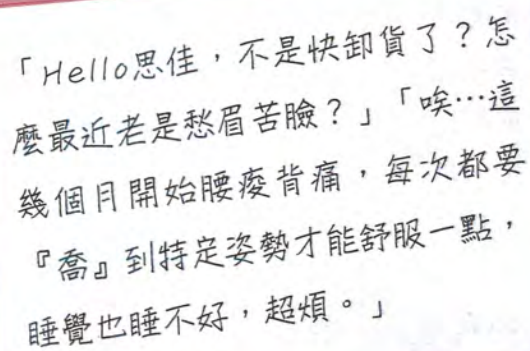 「Hello思佳，不是快卸貨了？怎
麼最近老是愁眉苦臉？」「唉…這
幾個月開始腰痠背痛，每次都要
『喬』到特定姿勢才能舒服一點，
睡覺也睡不好，超煩。」